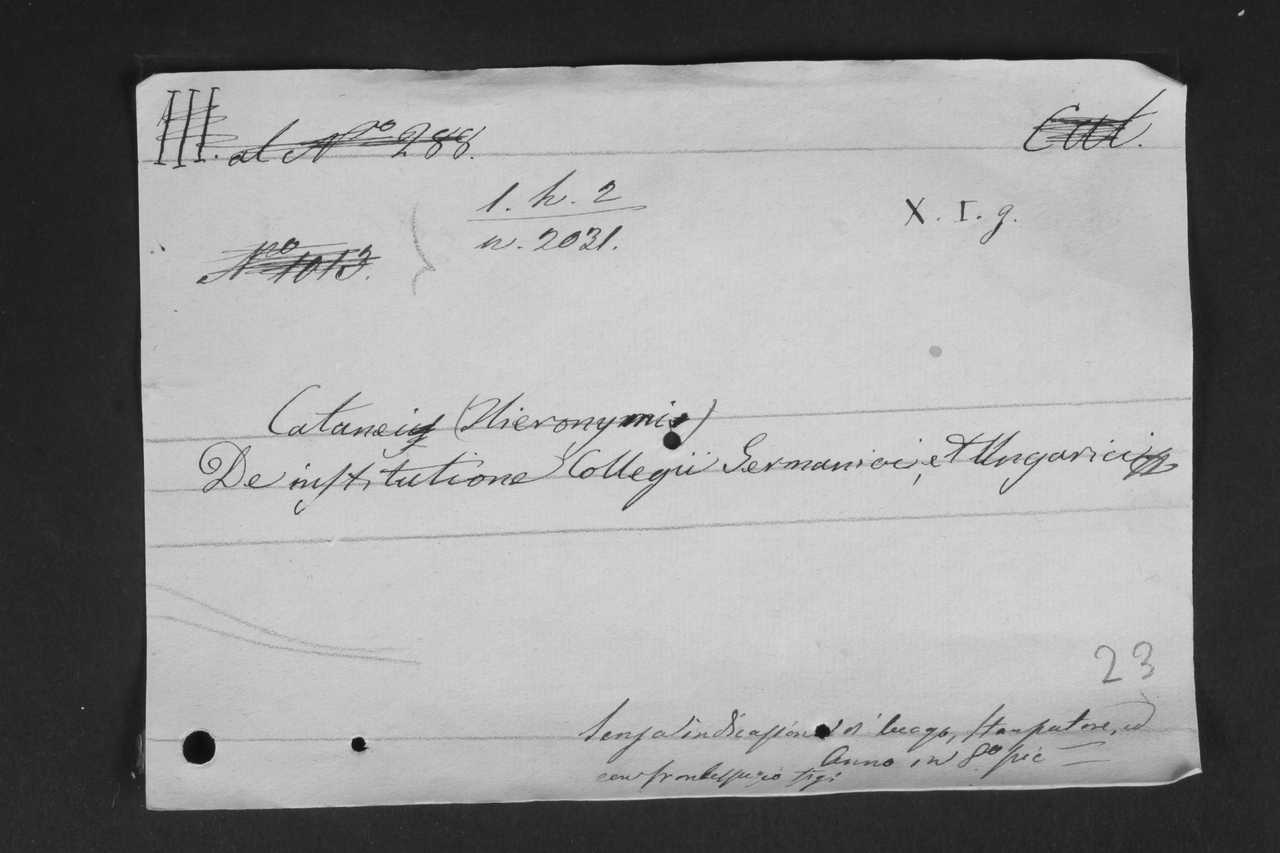 III. al Nro 288.
Cat.
1. h. 2
n. 2031.
X. I. g.
Nro 1013.
Cataneis (Hieronymi)
De institutione Collegii Germanici, et Ungarici
23
Senza indicazione di luogo, stampatore, ed
Anno in 8o pic
con frontespizio